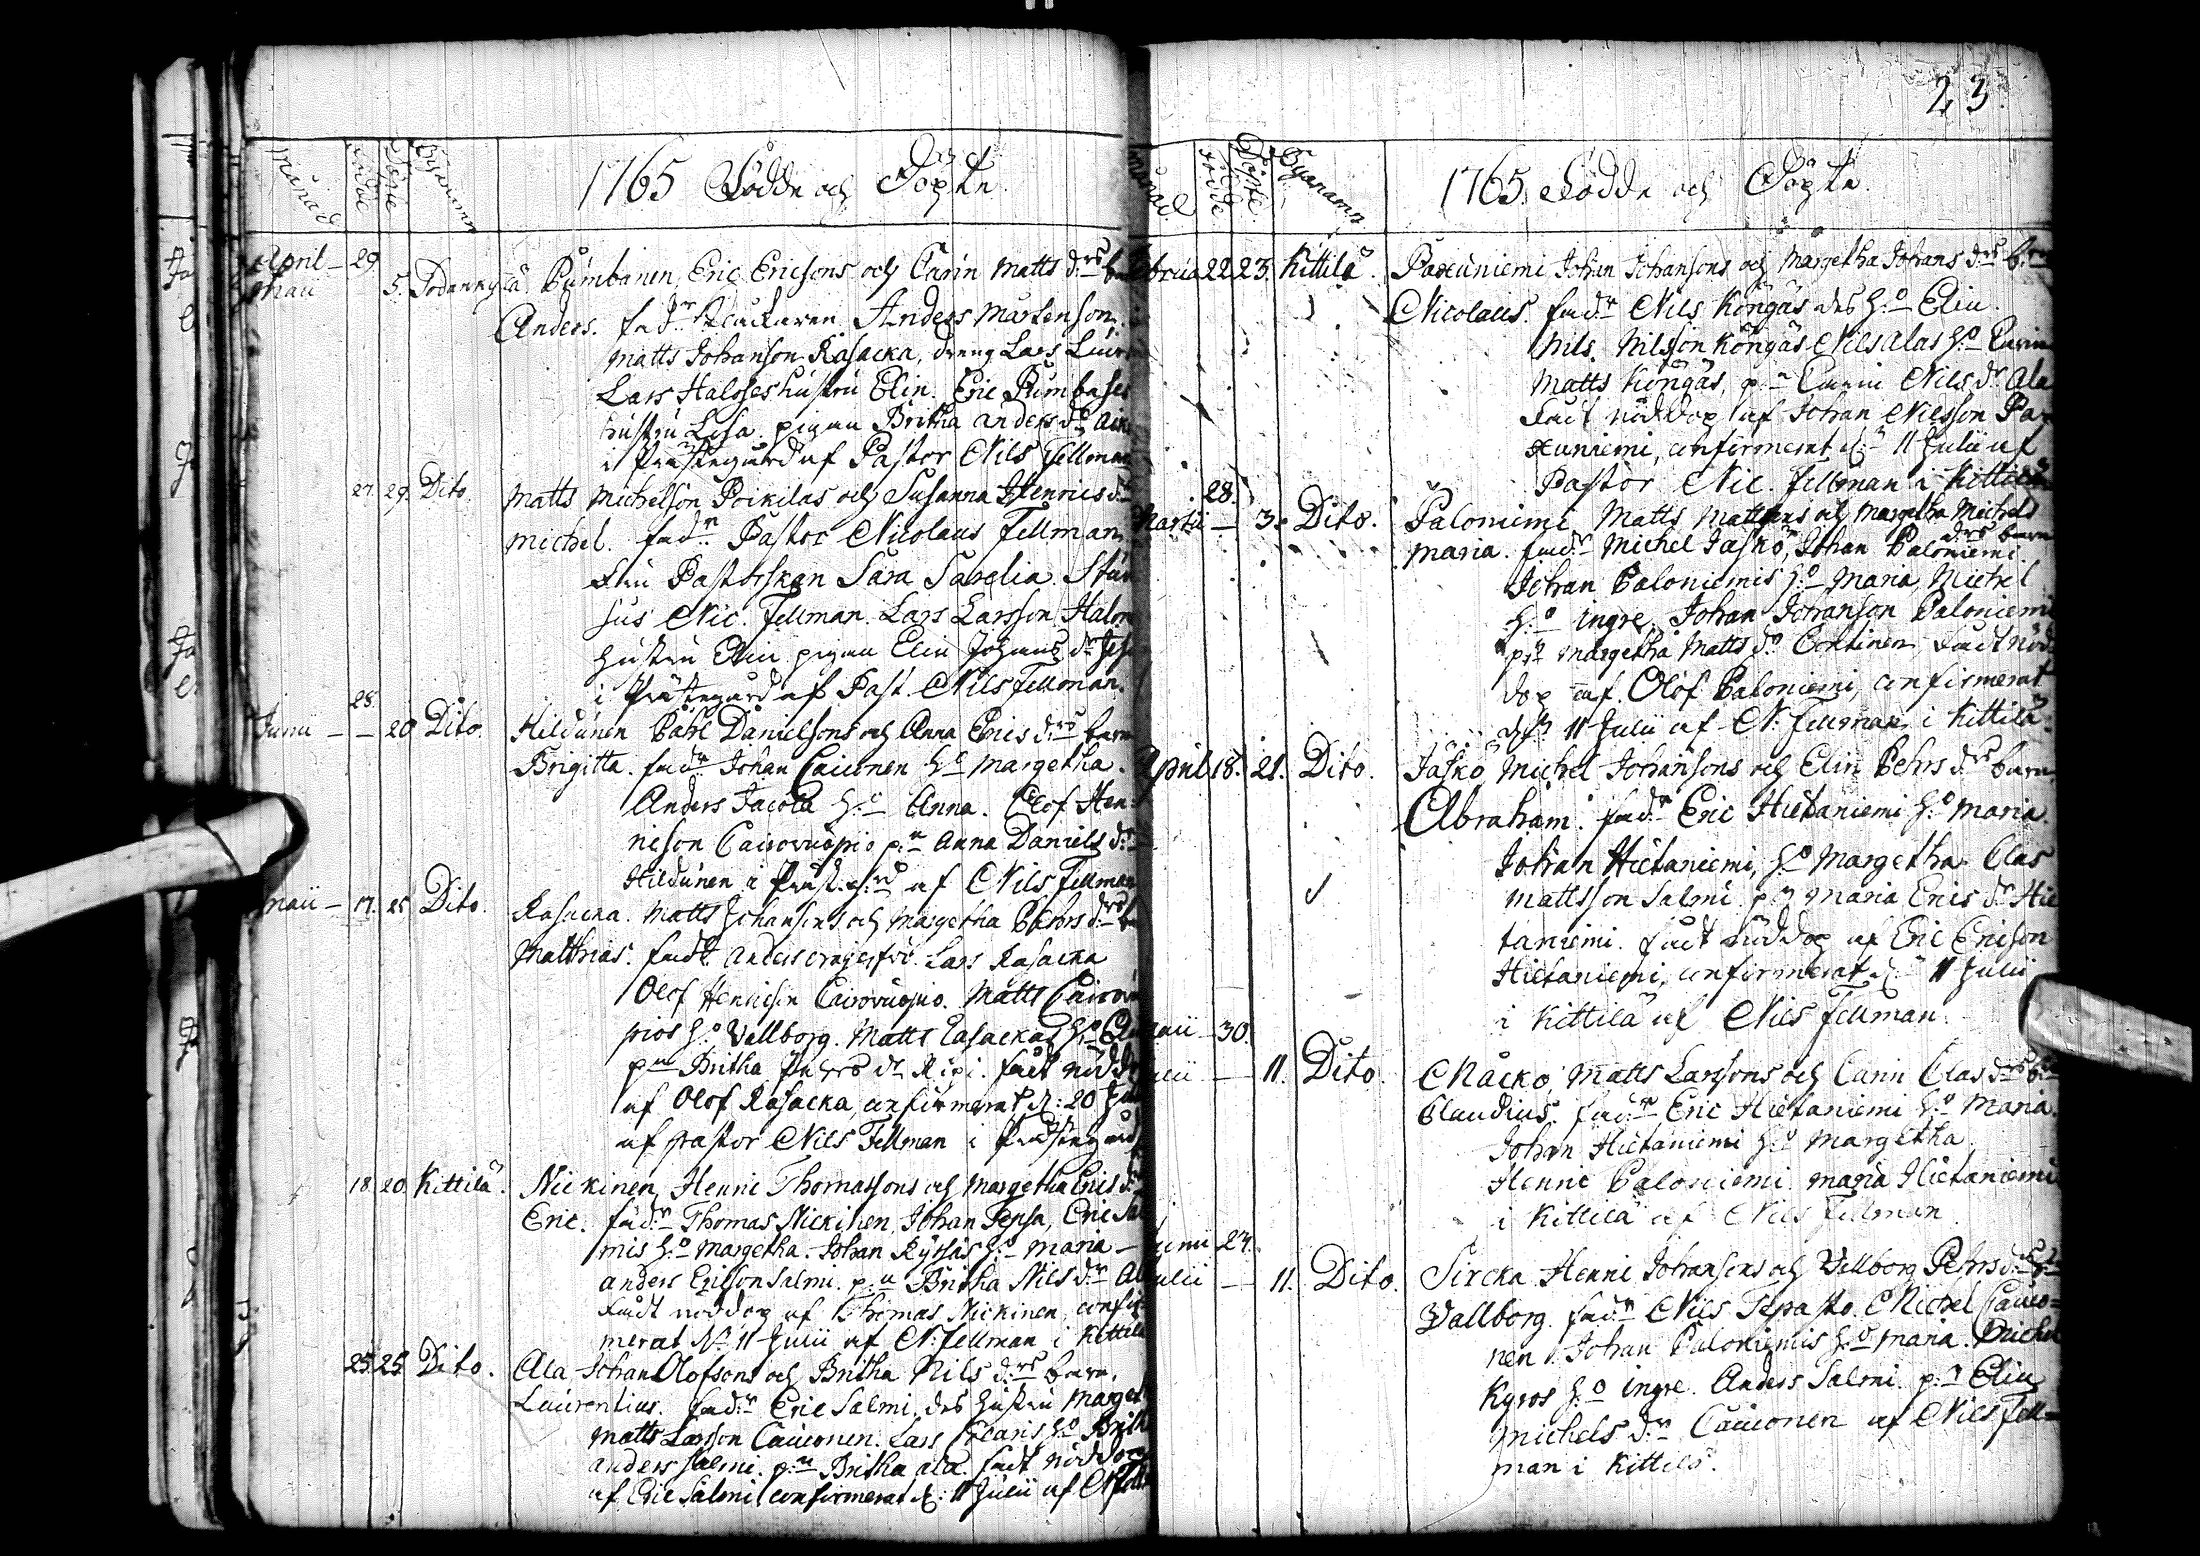 Månad födde Döpte Bynamn 1765 Födde och Döpte.
April – 29
Maii 5. Sodankylä Pumbanen, Eric Ericsons och Carin Matts d:rs
Anders. fad:r Anders Mårtenson.
Matts Johanson Rasacka, dreng Lars
Lars Halsses hustru Elin. Eric Pumbases
hustru Lisa. pigan Britha Anders d:r
i Prästegård af Pastor Nils Fellman
27. 29. Dito. Matts Michelson Poikilas och Susanna Henrics d:r
Michel. fad:r Pastor Nicolaus Fellman
Fru Pastorskan Sara
Nic. Fellman. Lars Larsson
Hustru Elin pigan Elin Johans d:r
i Prästegård af Past. Nils Fellman.
28.
Junii – – 20 Dito. Hildunen Påhl Danielsons och Anna Erics d:rs barn
Brigitta. fad:r Johan Cauonen h:o Margetha.
Anders Jacola h:o Anna. Olof Hen-
ricson Cairovuopio p:n Anna Daniels d:r
Hildunen i Präst.g:rd af Nils Fellman
Maii – 17. 25 Dito. Rasacka. Matts Johansons och Margetha Pehrs d:rs
Matthias. fad:r Anders Lars Rasacka
Olof Henricson Cairovuopio. Matts
pios h:o Vallborg. Matts Rasackas h:o
p:n Britha d:r fådt nöddop
af Olof Rasacka, confirmerat d: 20
af Pastor Nils Fellman i Prästegård
18. 20. Kittilä. Nickinen, Henric Thomassons och Margetha Erics d:rs
Eric. fad:r Thomas Nickinen, Johan Tepsa, Eric
mis h:o Margetha. Johan Kyrös h:o Maria –
Anders Ericson Salmi. p:n Britha Nils d:r
Fådt nöddop af Thomas Nickinen, confir-
merat d: 11 Julii af N. Fellman i Kittilä
23. 25. Dito. Ala Johan Olofsons och Britha Nils d:rs barn.
Laurentius. fad:r Eric Salmi, des hustru
Matts Larsson Cauonen. Lars h:o
Anders Salmi. p:n Britha Ala. fådt nöddop
af Eric Salmi confirmerat d: 11 Julii af
23.
Månad. födde Döpte. Bynamn 1765 Födde och Döpte.
22 23. Kittilä. Paxuniemi Johan Johansons och Margetha Johans d:rs
Nicolaus. fad:r Nils Köngäs des h:o Elin.
Nils Nilsson Köngäs Nils Alas h:o
Matts Köngäs, p:n Carin Nils d:r Ala
Fådt nöddop af Johan Nilsson Pa-
xuniemi, confirmerat d: 11 Julii af
Pastor Nic. Fellman i Kittilä
28.
Martii – 3. Dito. Paloniemi Matts Mattsons och Margetha Michels
d:rs barn
Maria. fad:r Michel Jäskö, Johan Paloniemi.
Johan Paloniemis h:o Maria, Michel
h:o Ingre. Johan Johanson Paloniemi
p:n Margetha Matts d:r Fådt nöd
dop af Olof Paloniemi, confirmerat
d: 11 Julii af N. Fellman i Kittilä.
April 18. 21. Dito. Jäskö Michel Johansons och Elin Pehrs d:rs barn
Abraham. fad:r Eric Hietaniemi h:o Maria.
Johan Hietaniemi, h:o Margetha. Clas
Mattsson Salmi. p:n Maria Erics d:r Hie
taniemi. fådt nöddop af Eric Ericson
Hietaniemi, confirmerat d: 11 Julii
i Kittilä af Nils Fellman.
Maii – 30.
– 11. Dito. Matts Larssons och Carin Clas d:rs
Claudius. fad:r Eric Hietaniemi h:o Maria.
Johan Hietaniemi h:o Margetha.
Henric Paloniemi Maria Hietaniemi
i Kittilä af Nils Fellman.
Junii 24.
Julii – 11. Dito. Sircka Henric Johansons och Vallborg Pehrs d:rs
Vallborg. fad:r Nils Michel Cauo-
nen. Johan Paloniemis h:o Maria.
Kyrös h:o Ingre. Anders Salmi. p:n Elin
Michels d:r Cauonen af Nils Fell-
man i Kittilä.